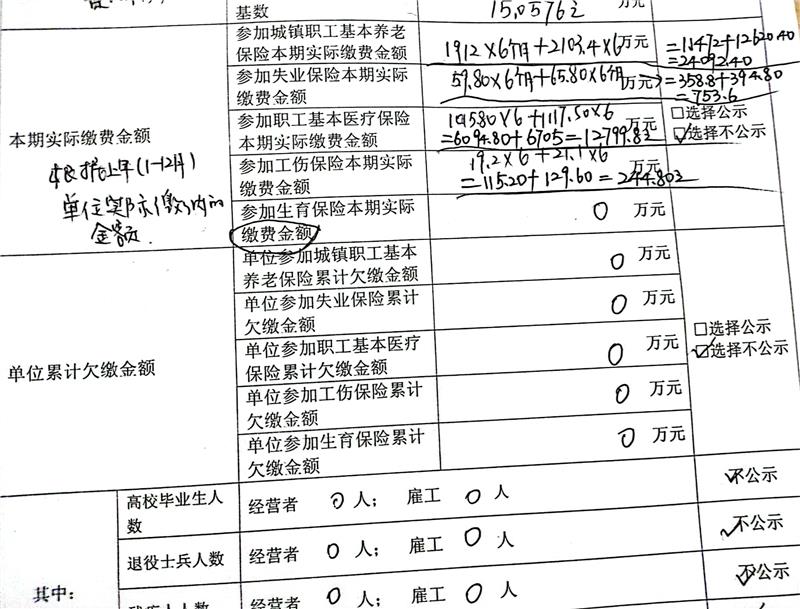 基数
15.0576 万元
参加城镇职工基本养老
保险本期实际缴费金额
1912×6个月+2103.4×6万元
=11472+12620.40
=24092.40
参加失业保险本期实际
缴费金额
59.80×6个月+65.80×6个月 万元
=358.8+394.80
=753.6
本期实际缴费金额
根据上年(1-12月)
单位实际缴纳的
金额.
参加职工基本医疗保险
本期实际缴费金额
×6+1117.50×6 万元
=6094.80+6705=12799.8
□选择公示
□选择不公示
参加工伤保险本期实际
缴费金额
19.2×6+21.1×6 万元
=115.20+129.60=244.80
参加生育保险本期实际
缴费金额
0 万元
单位累计欠缴金额
单位参加城镇职工基本
养老保险累计欠缴金额
0 万元
单位参加失业保险累计
欠缴金额
0 万元
单位参加职工基本医疗
保险累计欠缴金额
0 万元
□选择公示
□选择不公示
单位参加工伤保险累计
欠缴金额
0 万元
单位参加生育保险累计
欠缴金额
0 万元
其中:
高校毕业生人
数
经营者 0 人; 雇工 0 人
不公示
退役士兵人数
经营者 0 人; 雇工 0 人
不公示
残疾人人数
经营者 0 人; 雇工 0 人
不公示